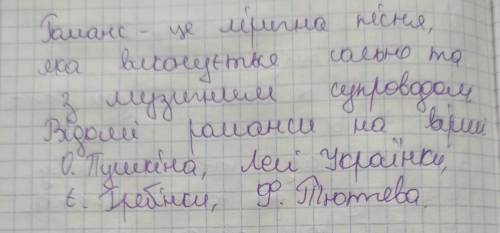 Романс - це лірична пісня,
яка виконується сольно та
з музичним супроводом
Відомі романси на вірші
О. Пушкіна, Лесі Українки,
Є. Гребінки, Ф. Тютчева.